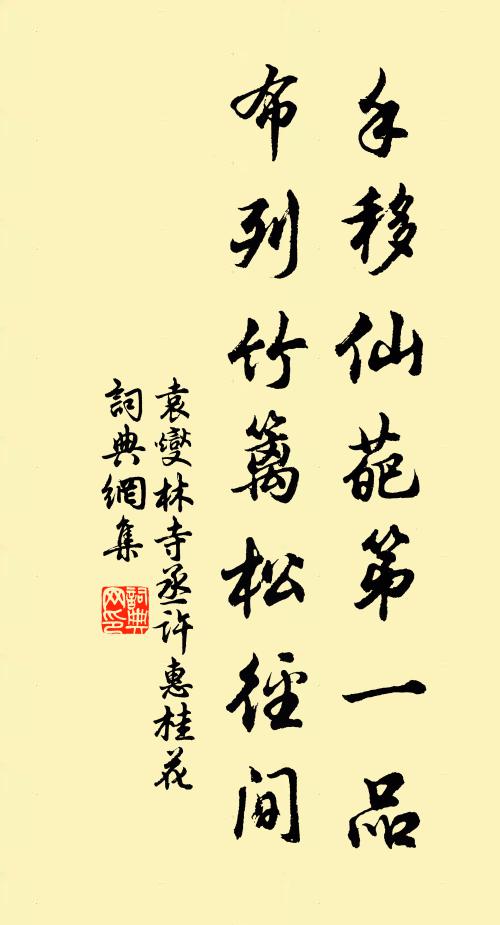 手移仙葩第一品
布列竹篱松徑间
袁燮林寺丞許惠桂花
詞典網集
詞典网印